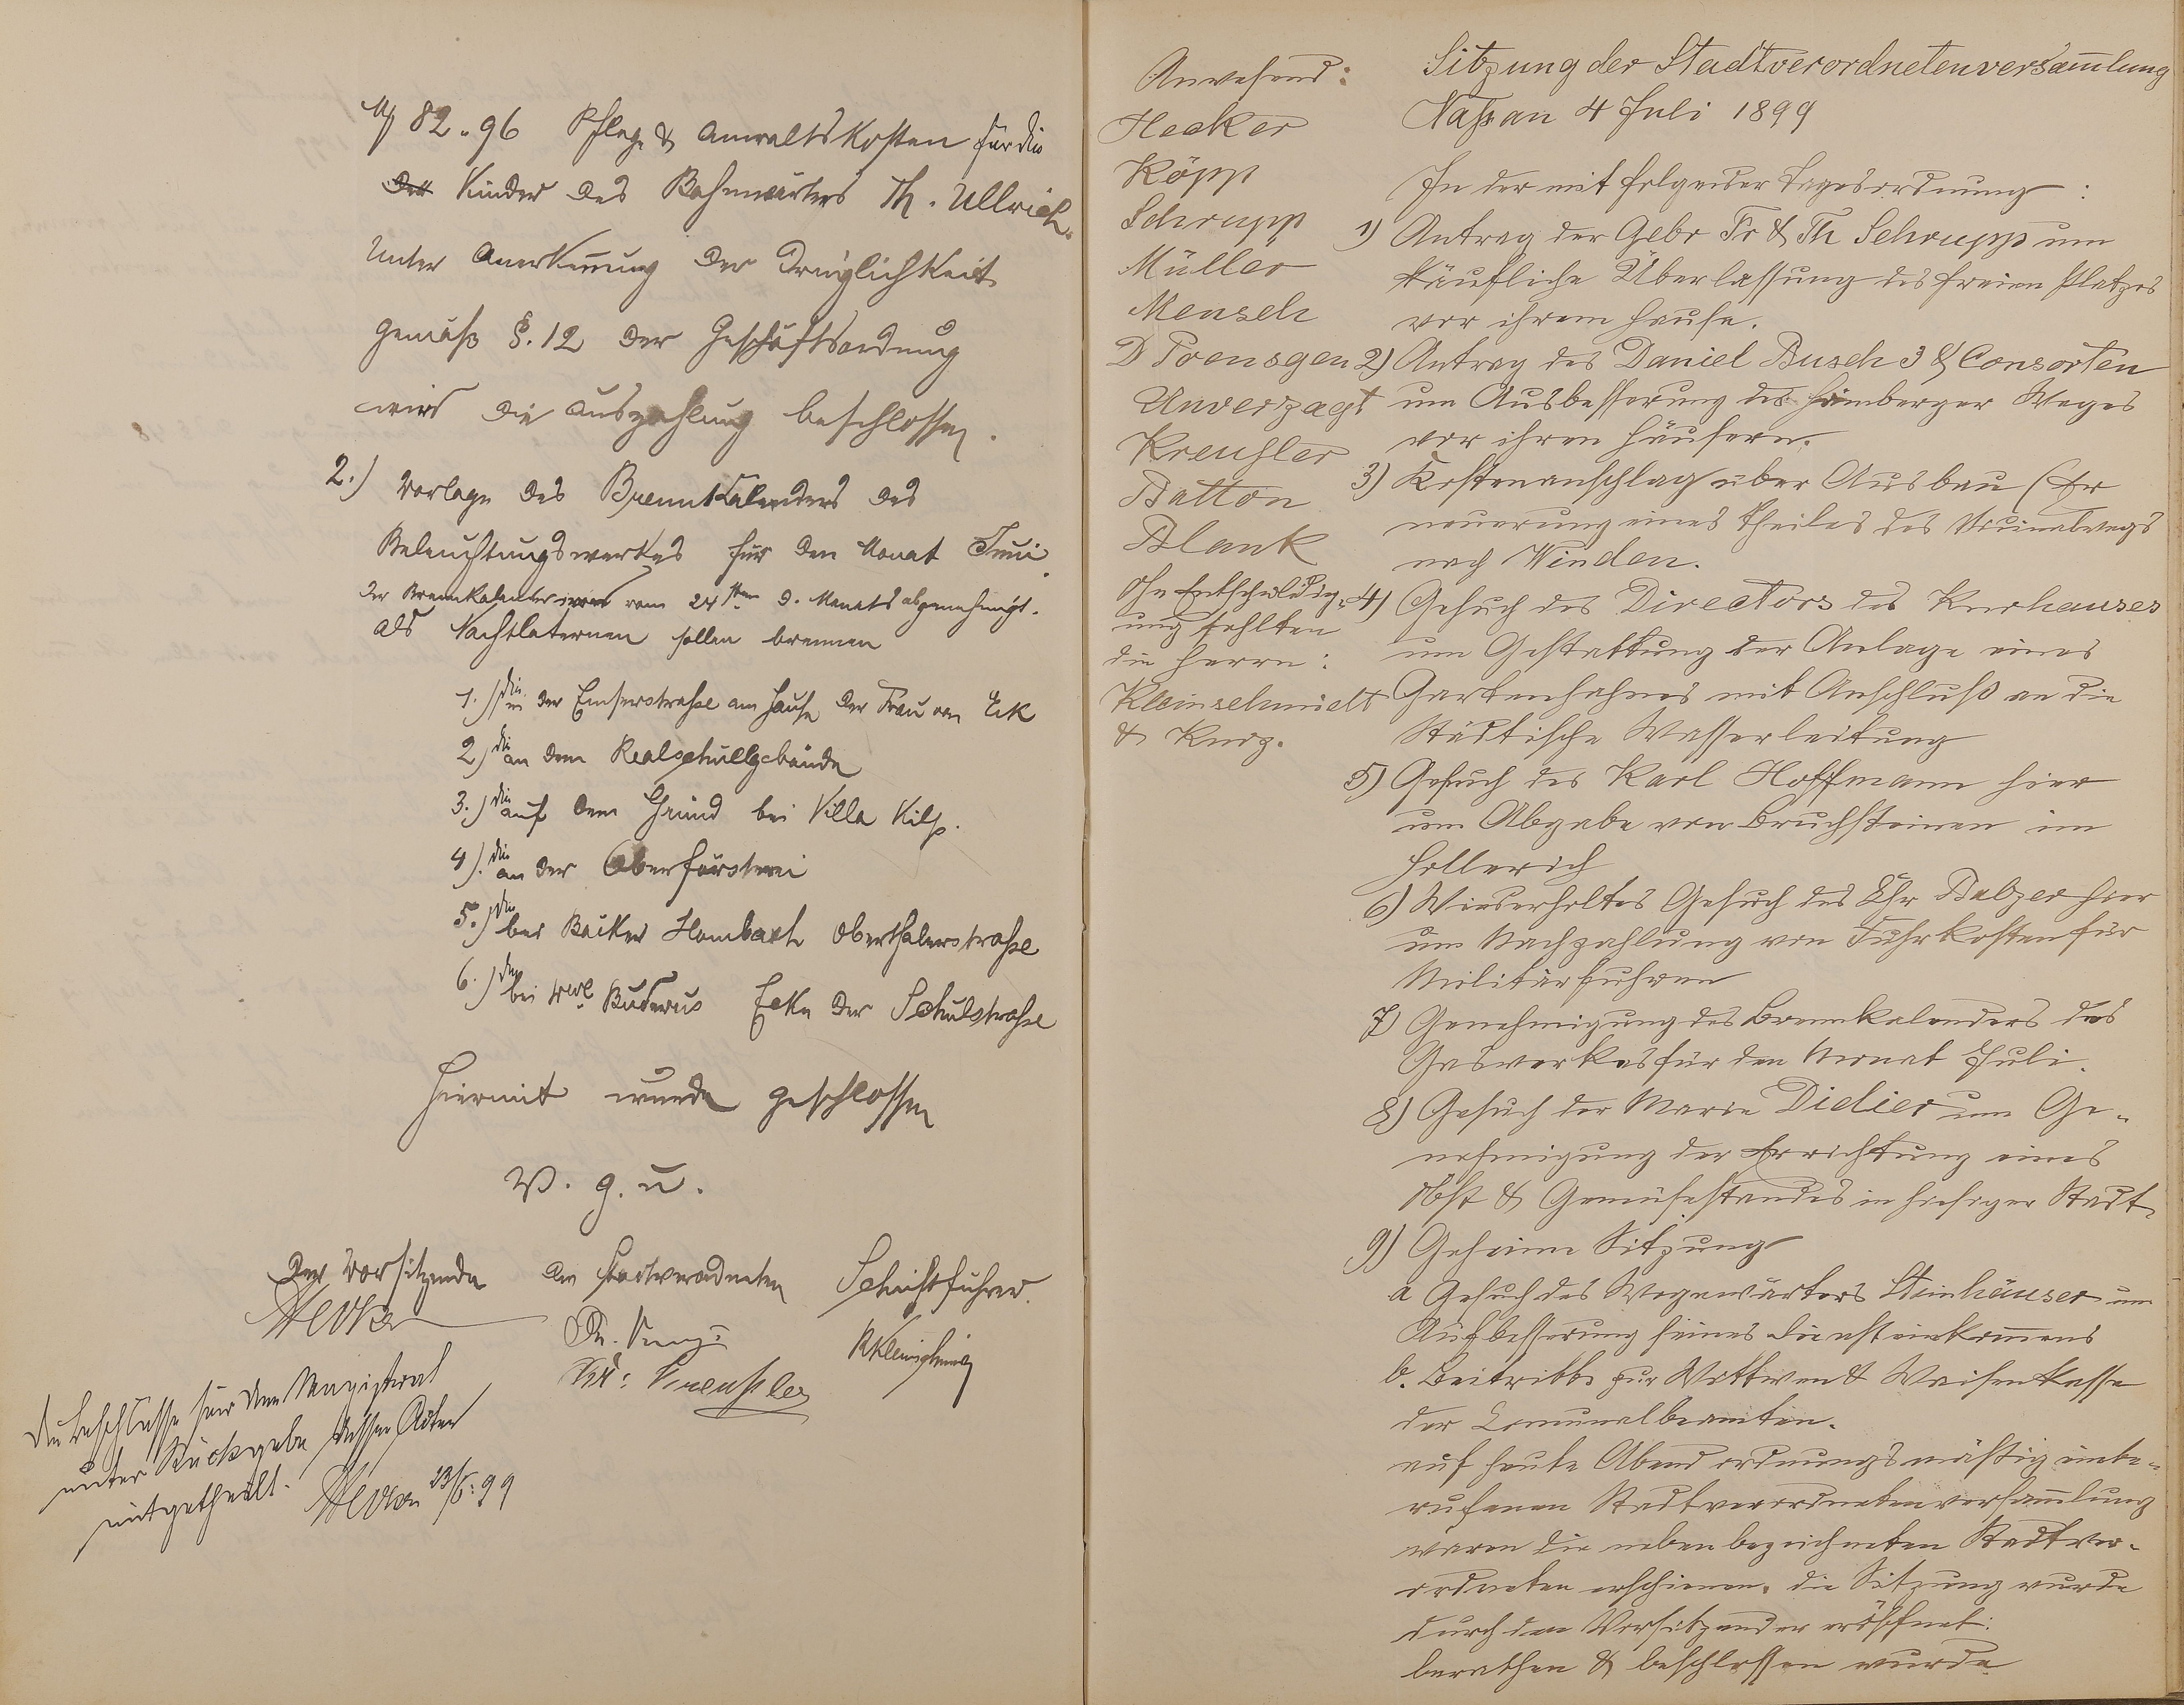 M 82.96 Pflege & Anwaltskosten für die
der Kinder des Bahnwärters Th. Ullrich.
Unter Anerkennung der Dringlichkeit
gemäß §. 12 der Geschäftsordnung
wird die Auszahlung beschlossen.
2.) Vorlage des Brennkalenders des
Beleuchtungswerkes für den Monat Juni.
Der Brennkalender wird vom 24ten d. Monats abgenehmigt.
Als Nachtlaternen sollen brennen
1.) die in der Emserstraße am Hause der Frau von Eck
2) die an dem Realschullgebäude
3.) die auf dem Grund bei Villa Kilp.
4). die an der Oberförsterei
5.) die bei Bäcker Hombach Oberthalerstraße
6.) die bei Wwe Buderus Ecke der Schulstraße
Hiermit wurde geschlossen
V. g. u.
Der Vorsitzende
Die Stadtverordneten
Schriftführer.
Hecker
Kreußler
RKleinschmidt
Die Beschlüsse für den Magistrat
unter Rückgabe dessen Akten
mitgetheilt.
Hecker 23/6. 99
Anwesend:
Hecker
Köpp
Schrupp
Müller
Mensch
D Poensgen
Unverzagt
Kreußler
Batton
Blank
Ohne Entschuldig-
ung fehlten
die Herrn:
Kleinschmidt
& Kurz.
Sitzung der Stadtverordnetenversam̄lung
Naßau 4 Juli 1899
In der mit folgender Tagesordnung:
1) Antrag der Gebr Fr & Th Schrupp um
käufliche Überlassung des freien Platzes
vor ihrem Hause.
2) Antrag des Daniel Busch 3 & Consorten
um Ausbesserung des Hömberger Weges
vor ihren Häusern.
3) Kostenanschlag über Ausbau (Er
neuerung eines Theiles des Vicinalwegs
nach Winden.
4) Gesuch des Directors des Kurhauses
um Gestattung der Anlage eines
Gartenhahnes mit Anschluß an die
Städtische Wasserleitung
5) Gesuch des Karl Hoffmann hier
um Abgabe von Bruchsteinen im
Hollerich
6) Wiederholtes Gesuch des Chr Balzer hier
um Nachzahlung von Fuhrkosten für
Militärfuhren
7) Genehmigung des Brennkalenders des
Gaswerkes für den Monat Juli.
8) Gesuch der Marie Didier um Ge-
nehmigung der Errichtung eines
Obst & Gemüsestandes in hiesiger Stadt.
9) Geheime Sitzung
a Gesuch des Wegewärters Steinhäuser um
Aufbesserung seines Diensteinkom̄ens
b. Beitritt zur Wittwen & Waisenkasse
der Com̄unalbeamten.
auf heute Abend ordnungsmäßig einbe-
rufenen Stadtverordnetenversam̄lung
waren die nebenbezeichneten Stadtver-
ordneten erschienen. Die Sitzung wurde
durch den Vorsitzenden eröffnet.
berathen & beschlossen wurde